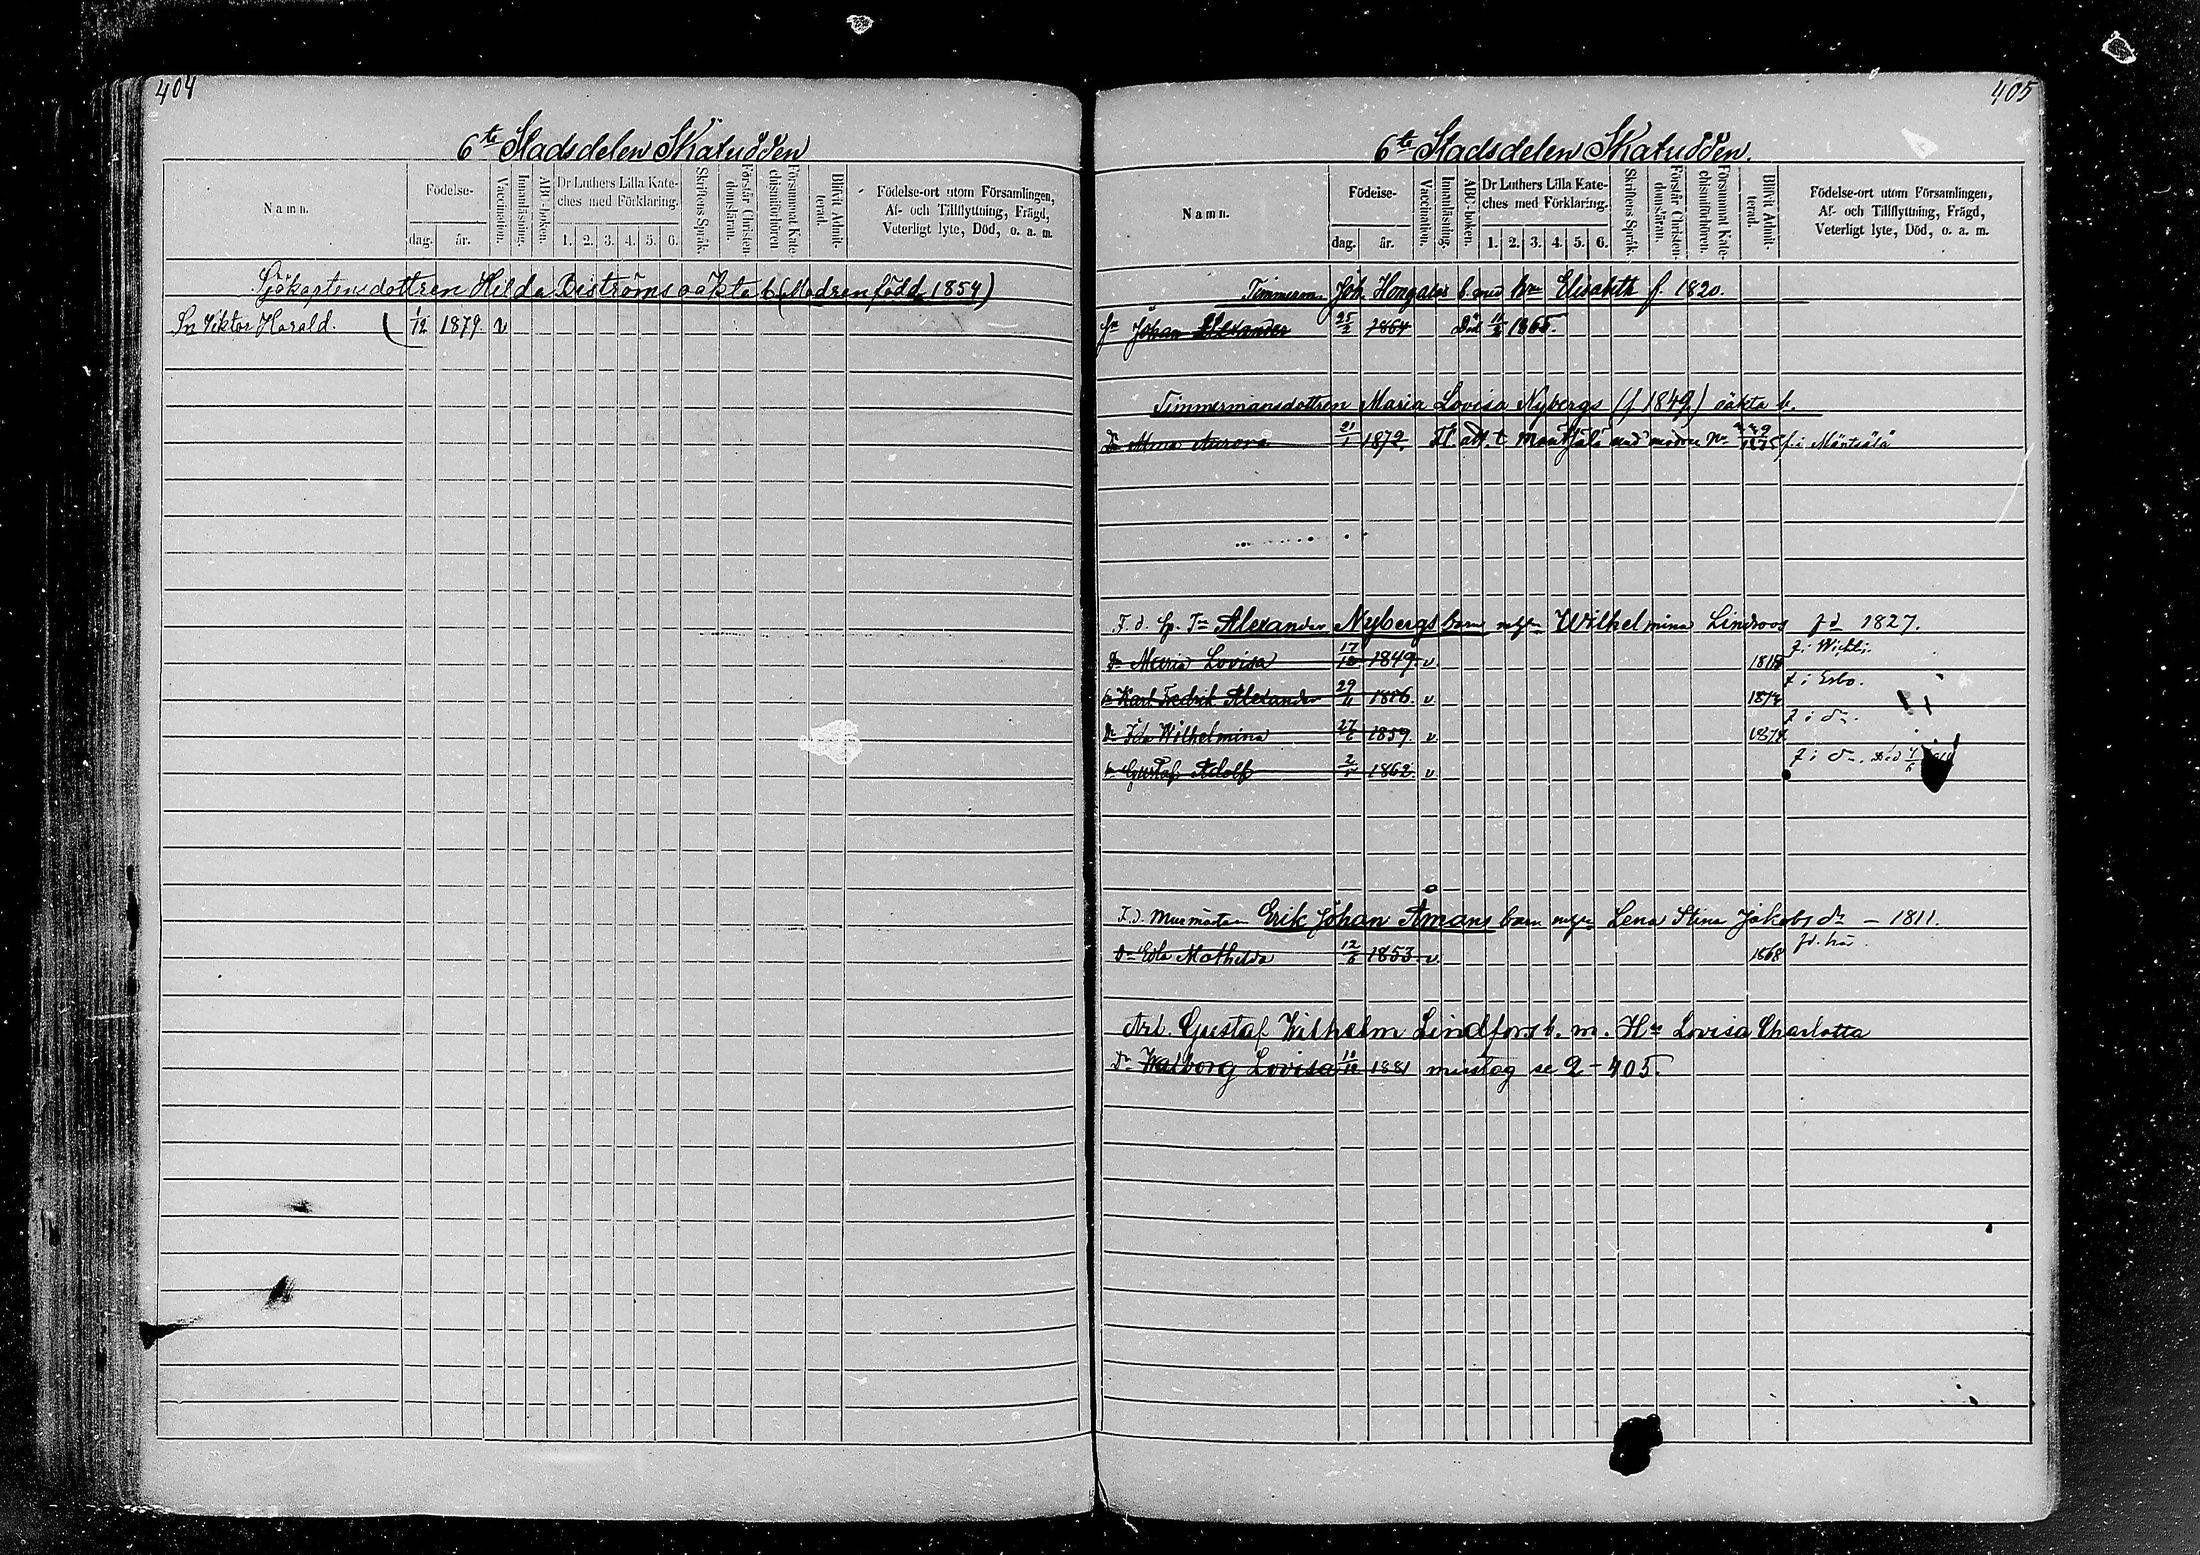 404
6te Stadsdelen Skatudden
Namn.
Födelse-
dag.
år.
Vaccination.
Innanläsning.
ABC-boken.
Dr Luthers Lilla Kate-
ches med Förklaring.
1. 2. 3. 4. 5. 6.
Skriftens Språk.
Förstår Christen-
domsläran.
Försummat Kate-
chismiförhören
Blifvit Admit-
terad.
Födelse-ort utom Församlingen,
Af- och Tillflyttning, Frägd,
Veterligt lyte, Död, o. a. m.
Sjökaptensdottren Hilda Biströms oäkta b (Modren född 1854)
Sn Viktor Harald. 1/12 1879 v
405
6te Stadsdelen Skatudden.
Namn.
Födelse-
dag.
år.
Vaccination.
Innanläsning.
ABC-boken.
Dr Luthers Lilla Kate-
ches med Förklaring.
1. 2. 3. 4. 5. 6.
Skriftens Språk.
Förstår Christen-
domsläran.
Försummat Kate-
chismiförhören.
Blifvit Admit-
terad.
Födelse-ort utom Församlingen,
Af- och Tillflyttning, Frägd,
Veterligt lyte, Död, o. a. m.
Timmerm. Joh. b. med Elisabeth f. 1820.
Johan Alexander 25/2 1864 Död 1865.
Timmermansdottren Maria Lovisa Nybergs (f 1849) oäkta b.
Dr Alma Aurora 21/1 1872 med modren No 1875 f. i Mäntsälä
F. d. Alexander Nybergs barn Wilhelmina Lindroos fd 1827.
f. i Wichtis.
Dr Maria Lovisa 17/10 1849 v
f i Esbo.
Karl Fredrik Alexander 29/11 v 1874
f i do.
Dr Ida Wilhelmina 27/6 1859. v 1874
f i do. Död
Gustaf Adolf 1862. v
F. d. Erik Johan Åmans barn Lena Stina Jakobs dr – 1811.
Dr Edla Mathilda 12/6 1853 v 1868
Arb. Gustaf Wilhelm Lindfors b. m. Hu Lovisa Charlotta
Dr Walborg Lovisa 10/12 1881 misstag se 2–405.